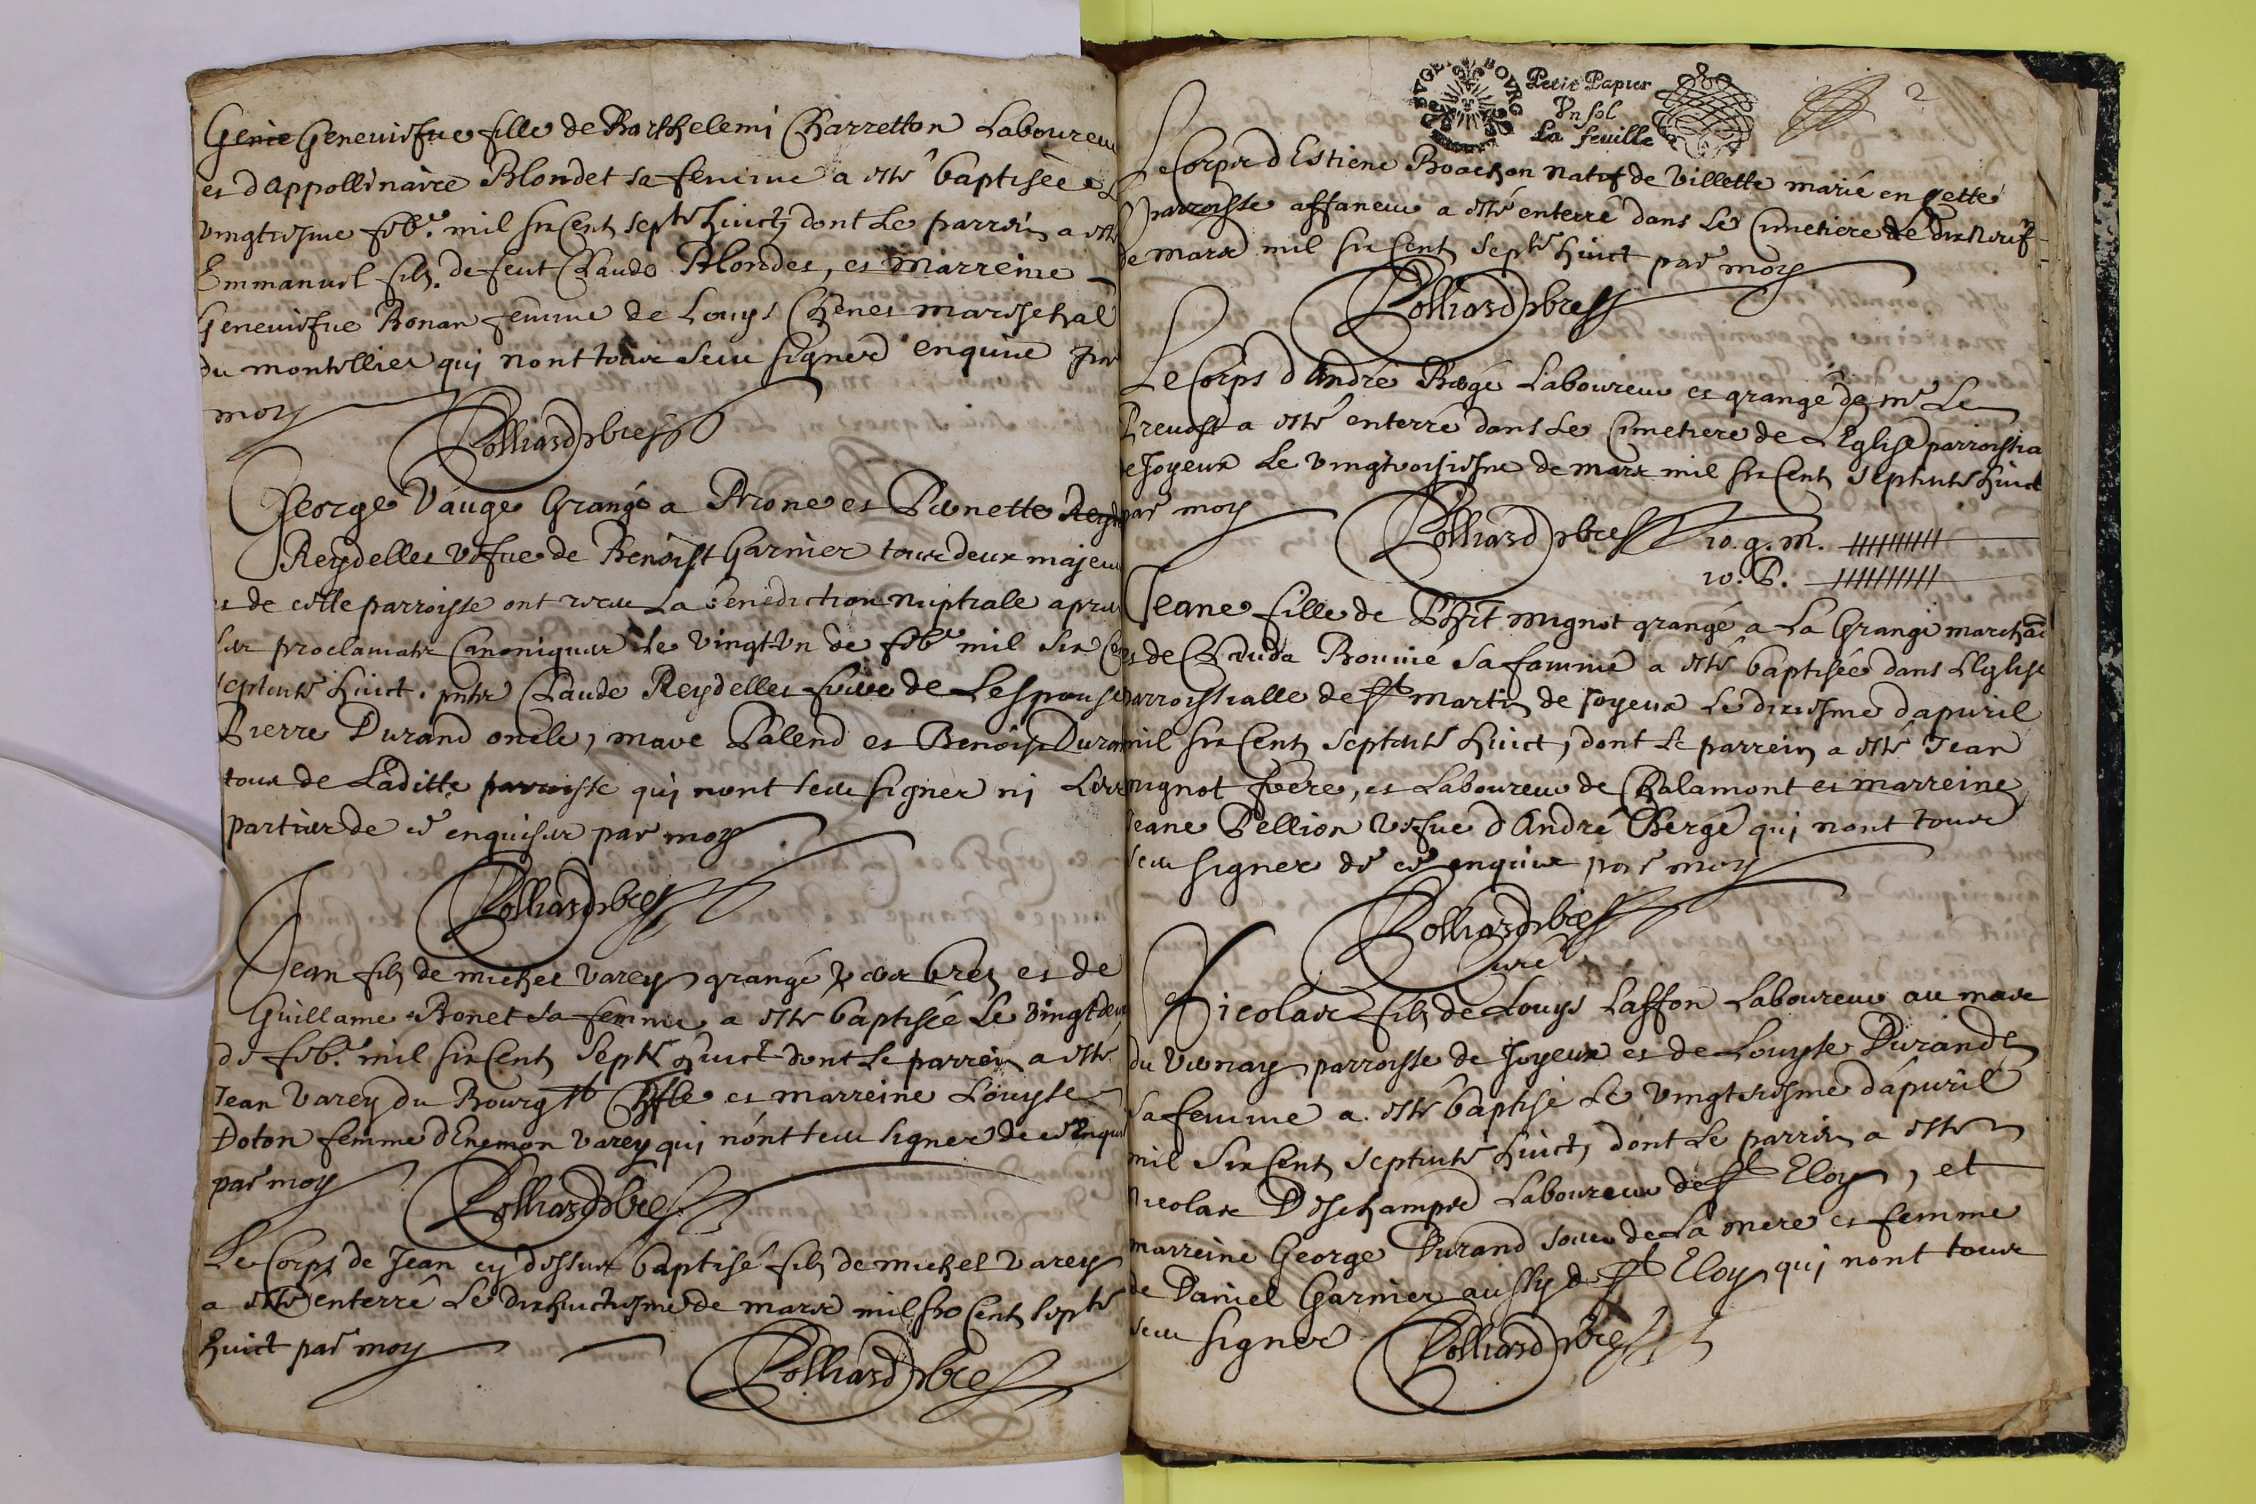 Genie Genevisfue fille de Barthelemi Charretton Laboureu
et dAppollinaire Blondet sa femme a esté baptisée Le
vingtiesme febr. mil six Cent septte huict, dont Le parrein a esté
Emmanuel fils. de feut Claude Blondet, et Marreine
Genevisfue Bonan femme de Louys Chenet mareschal
du montellier qui nont tous sceu signer enquis par
moy
Rolliard pbre
George Vauge Grangé a Prone et Pernette Reyd
Reydellet vefue de Benoist Garnier tous deux majeur
et de cette parroisse ont receu La benediction nuptiale apres
Les proclamatns Canoniques le vingt Un de febr mil six Cent
septente huict. pnts Claude Reydellet frere de Lespouse
Pierre Durand oncle, Palend et Benoist Duran
tous de Laditte parroisse qui nont sceu signer ni Les
parties de ce enquises par moy
Rolliard pbre
Jean fils de michel varey grangé et de
Guillame Bonet sa femme a esté baptisée Le vingt deu
de febr. mil six Cent septte huict dont Le parrein a esté
Jean Varey du Bourg St Chfle et marreine Louyse
Doton femme dEnemon varey qui nont sceu signer de ce enquis
par moy
Rolliard pbre
Le Corps de Jean cy dessus baptisé fils de michel varey
a esté enterré Le dixhuictiesme de mars mil six Cent septte
huict par moy
Rolliard pbre
BOURG
Petit Papier
Vn sol
La feuille
2
Le Corps dEstiene Bouchon natif de villette marié en cette
parroisse affaneur a esté enterré dans Le Cimetiere Le dix Neuf
de mars mil six Cent septte huict par moy
Rolliard pbre
Le Corps dAndré Bergé Laboureur et grangé de Mr Le
Prevost a esté enterré dans Le Cimetiere de LEglise parroissia
de Joyeux Le vingtroisiesme de mars mil six Cent septente huict
par moy
Rolliard pbre
10. g. m. ||||||||||
10. B. ||||||||||
Jeane fille de Phrt mignot grangé a La Grange marchād
et de Clauda Bouvié sa femme a esté baptisée dans LEglise
parroissialle de St martin de Joyeux Le dixiesme dapuril
mil six Cent septente huict, dont Le parrein a esté Jean
mignot frere, et Laboureur de Chalamont et marreine
Jeane Pellion vefue dAndré Bergé qui nont tous
sceu signer de ce enquis par moy
Rolliard pbre
Curé
Nicolas fils de Louys Laffon Laboureur au mas
du Vernay parroisse de Joyeux et de Louyse Durande
sa femme a esté baptisé Le vingtiesme dapuril
mil six Cent septente huict, dont Le parrein a esté
Nicolas Deschamps Laboureur de St Eloy, et
marreine George Durand soeur de La mere et femme
de Daniel Garnier aussy de St Eloy qui nont tous
sceu signer
Rolliard pbre